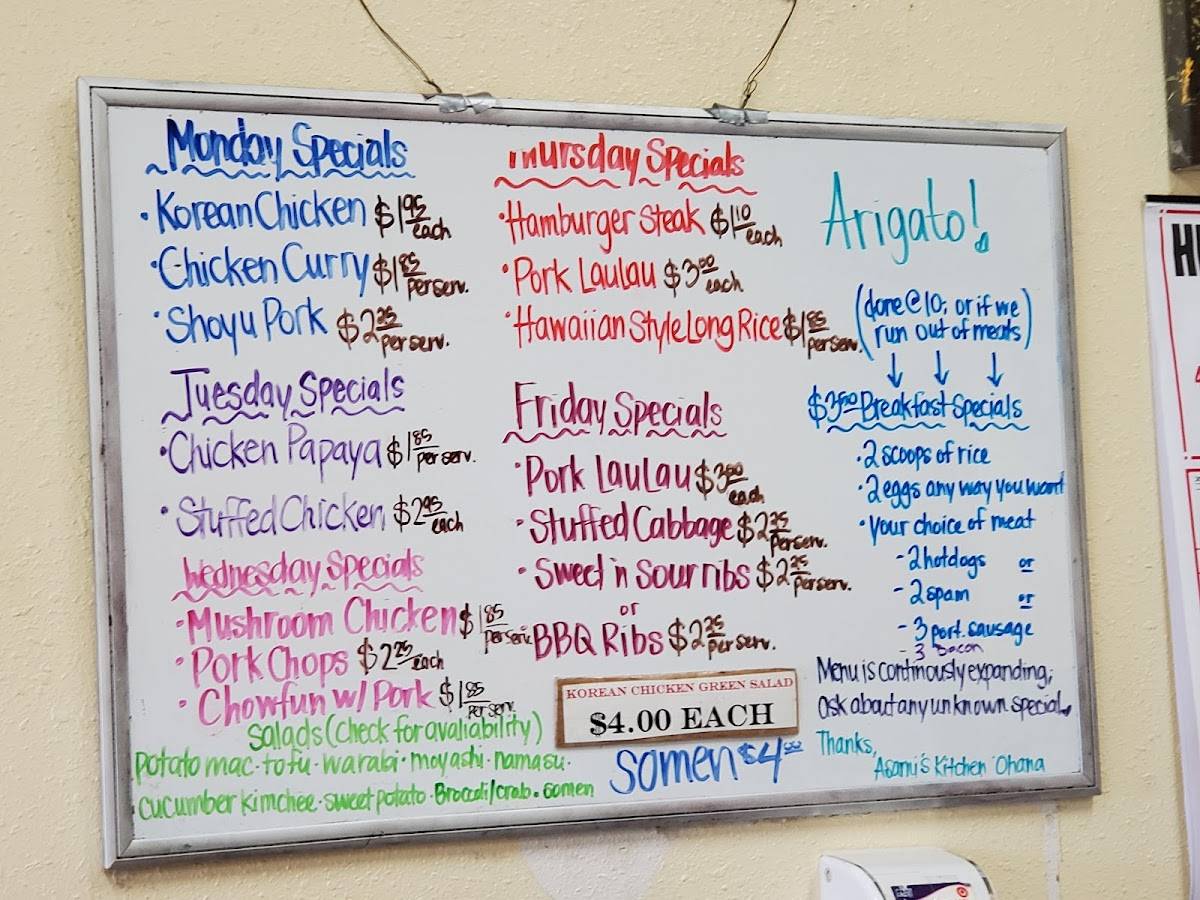 Monday Specials
• Korean Chicken $1.95 each
• Chicken Curry $1.85 per serv.
• Shoyu Pork $2.25 per serv.
Tuesday Specials
• Chicken Papaya $1.85 per serv.
• Stuffed Chicken $2.95 each
Wednesday Specials
• Mushroom Chicken $1.85 per serv.
• Pork Chops $2.25 each
• Chowfun w/ Pork $1.85 per serv.
Salads (Check for avaliability)
Potato mac • tofu • warabi • moyashi • namasu •
cucumber kimchee • sweet potato • Broccoli/crab • somen
Thursday Specials
• Hamburger Steak $1.10 each
• Pork Laulau $3.00 each
• Hawaiian Style Long Rice per serv.
Friday Specials
• Pork Laulau $3.00 each
• Stuffed Cabbage $2.25 per serv.
• Sweet 'n Sour ribs $2.25 per serv.
or
BBQ Ribs $2.25 per serv.
KOREAN CHICKEN GREEN SALAD
$4.00 EACH
Somen $4.00
Arigato!
(done @ 10; or if we
run out of meats)
Breakfast Specials
• 2 scoops of rice
• 2 eggs any way you want
• Your choice of meat
- 2 hotdogs or
- 2 spam or
- 3 port. sausage
- 3 bacon
Menu is continously expanding;
ask about any unknown special.
Thanks,
Asami's Kitchen Ohana